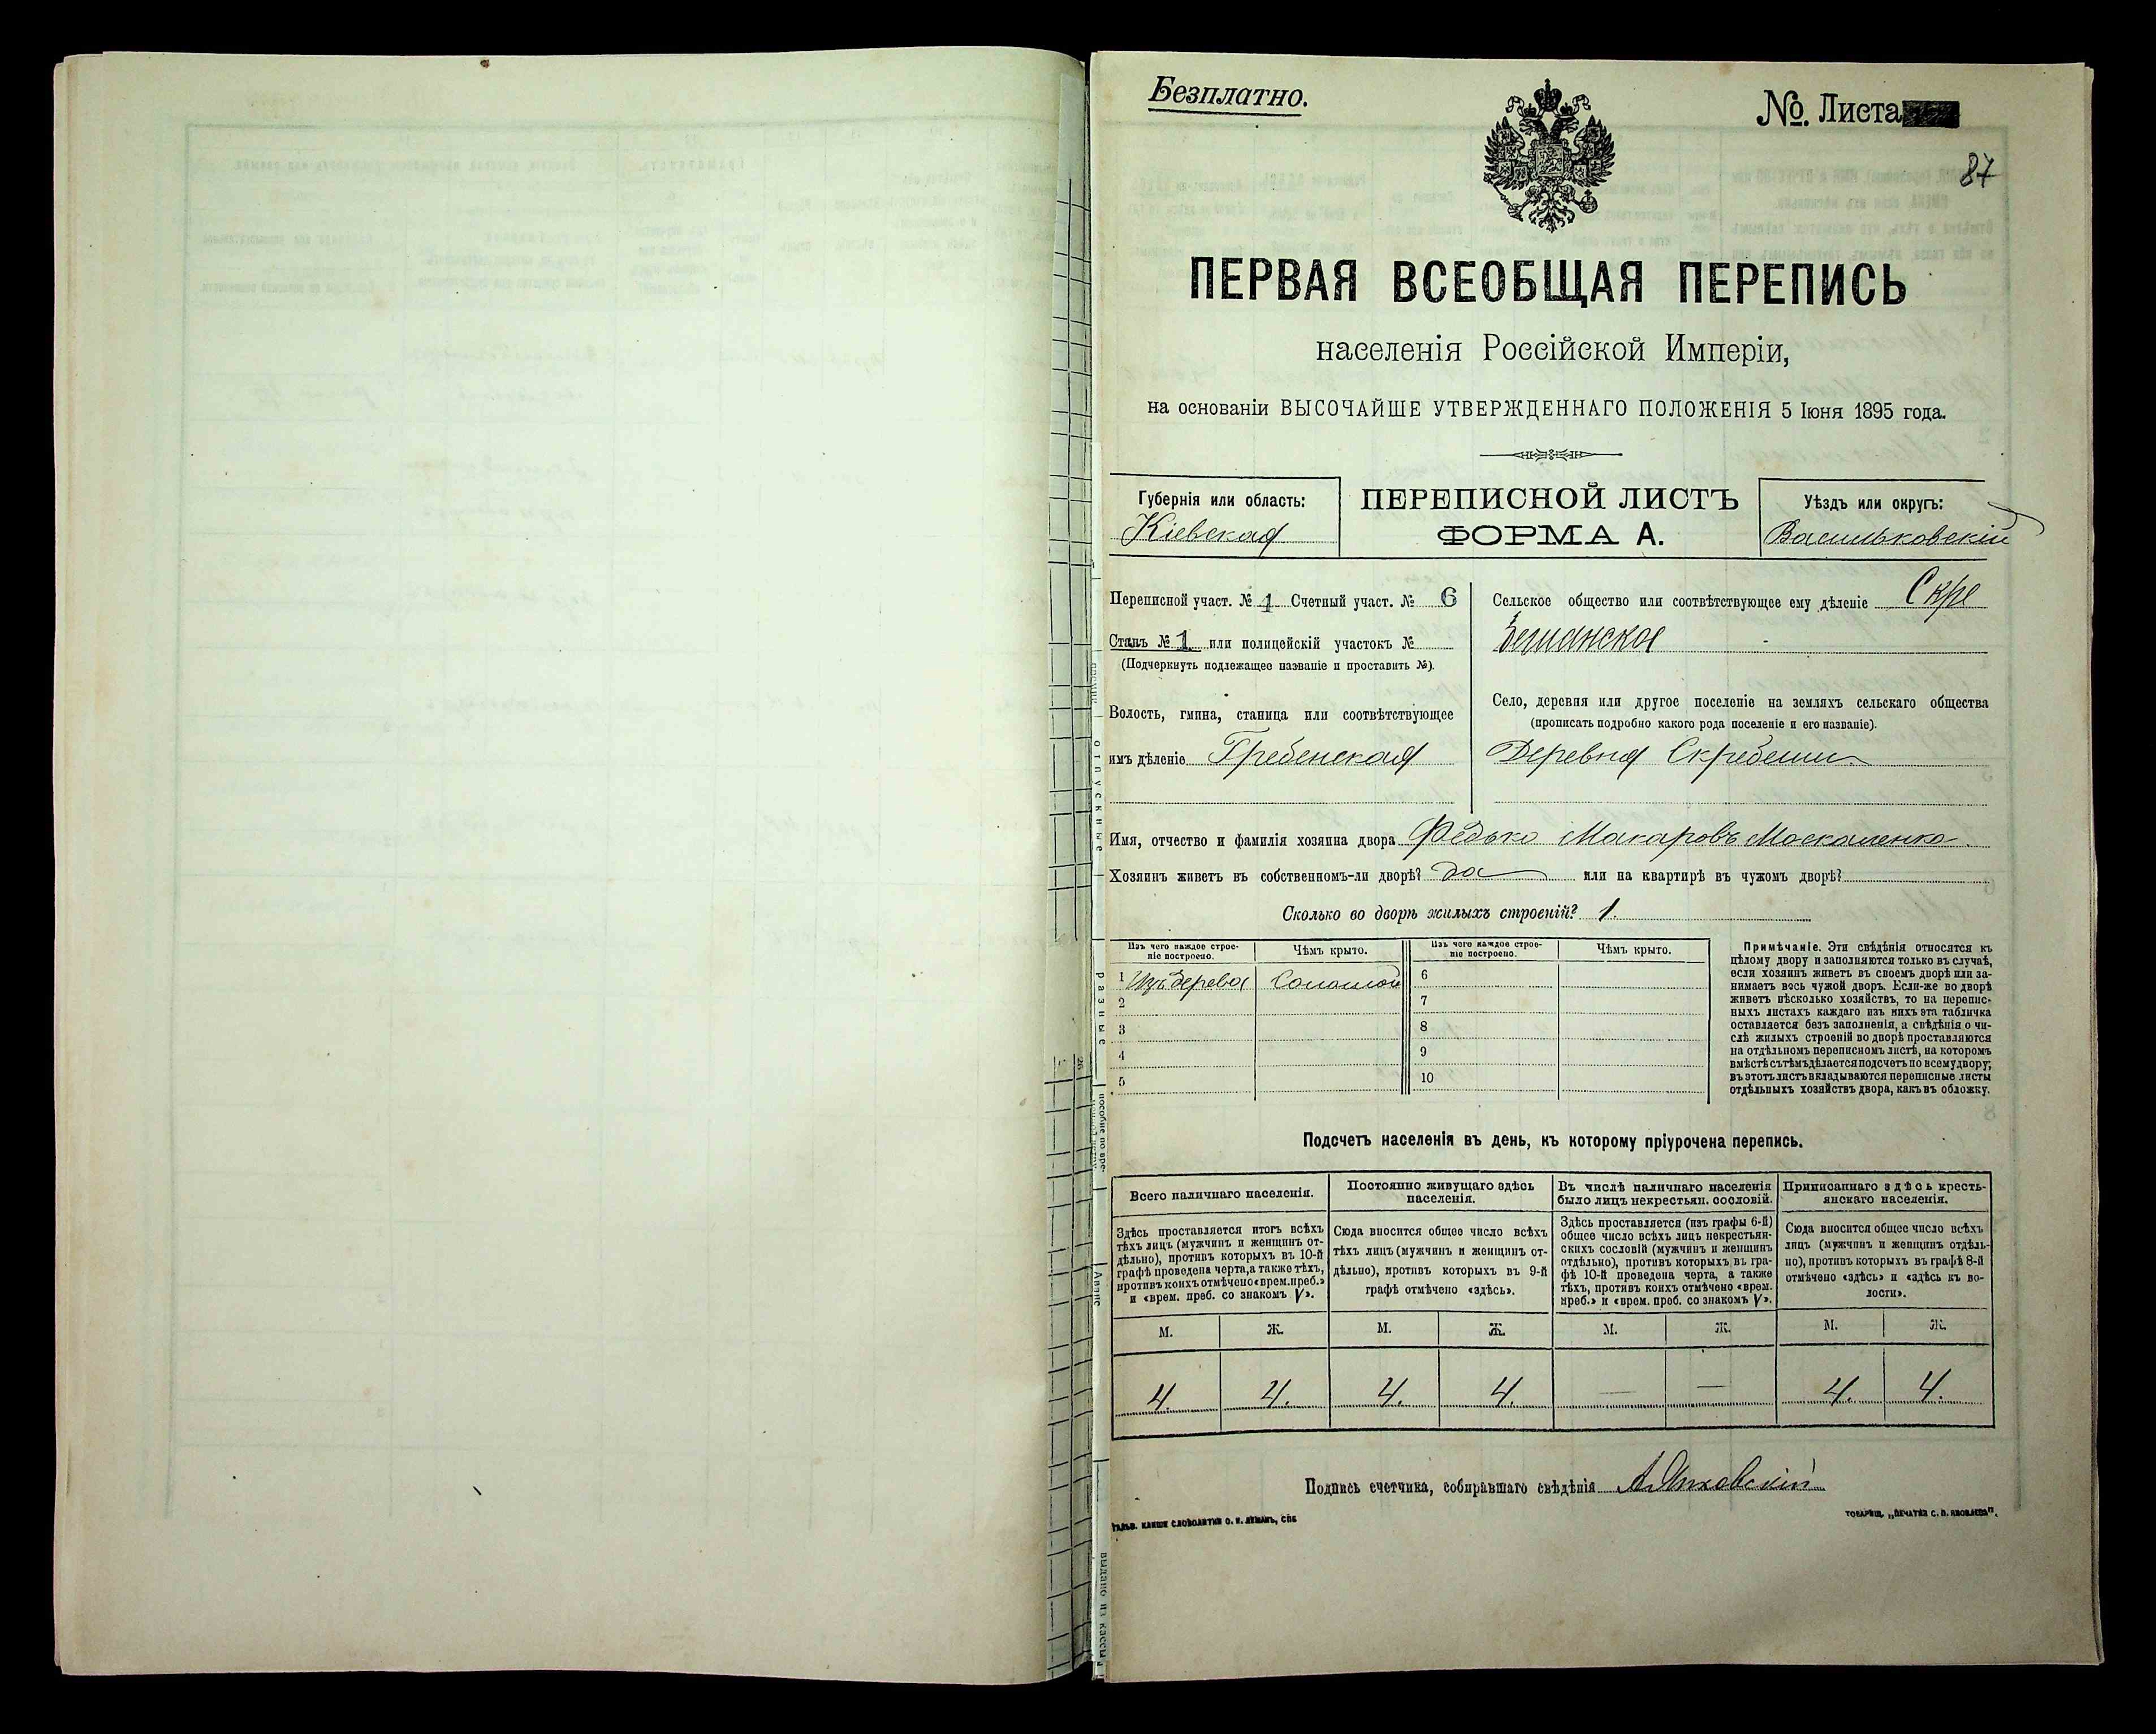 Безплатно.
№. Листа
87
ПЕРВАЯ ВСЕОБЩАЯ ПЕРЕПИСЬ
населенія Россійской Имперіи,
на основаніи ВЫСОЧАЙШЕ УТВЕРЖДЕННАГО ПОЛОЖЕНІЯ 5 Іюня 1895 года.
Губернія или область:
Кіевская
ПЕРЕПИСНОЙ ЛИСТЪ
ФОРМА А.
Уѣздъ или округъ:
Васильковскій
Переписной участ. № 1 Счетный участ. № 6
Станъ № 1 или полицейскій участокъ №
(Подчеркнуть подлежащее названіе и проставить №).
Волость, гмина, станица или соотвѣтствующее
имъ дѣленіе Гребенская
Сельское общество или соотвѣтствующее ему дѣленіе Скре
бешанское
Село, деревня или другое поселеніе на земляхъ сельскаго общества
(прописать подробно какого рода поселеніе и его названіе).
Деревня Скребеши
Имя, отчество и фамилія хозяина двора Федько Макаровъ Москаленко
Хозяинъ живетъ въ собственномъ-ли дворѣ? да или на квартирѣ въ чужомъ дворѣ?
Сколько во дворѣ жилыхъ строеній? 1.
Изъ чего каждое строе-
ніе построено.
Чѣмъ крыто.
Изъ чего каждое строе-
ніе построено.
Чѣмъ крыто.
1 Изъ дерева Соломой 6
2 7
3 8
4 9
5 10
Примѣчаніе. Эти свѣдѣнія относятся къ
цѣлому двору и заполняются только въ случаѣ,
если хозяинъ живетъ въ своемъ дворѣ или за-
нимаетъ весь чужой дворъ. Если-же во дворѣ
живетъ нѣсколько хозяйствъ, то на перепис-
ныхъ листахъ каждаго изъ нихъ эта табличка
оставляется безъ заполненія, а свѣдѣнія о чи-
слѣ жилыхъ строеній во дворѣ проставляются
на отдѣльномъ переписномъ листѣ, на которомъ
вмѣстѣ съ тѣмъ дѣлается подсчетъ по всему двору;
въ этотъ листъ вкладываются переписные листы
отдѣльныхъ хозяйствъ двора, какъ въ обложку.
Подсчетъ населенія въ день, къ которому пріурочена перепись.
Всего наличнаго населенія.
Здѣсь проставляется итогъ всѣхъ
тѣхъ лицъ (мужчинъ и женщинъ от-
дѣльно), противъ которыхъ въ 10-й
графѣ проведена черта, а также тѣхъ,
противъ коихъ отмѣчено «врем. преб.»
и «врем. преб. со знакомъ V».
Постоянно живущаго здѣсь
населенія.
Сюда вносится общее число всѣхъ
тѣхъ лицъ (мужчинъ и женщинъ от-
дѣльно), противъ которыхъ въ 9-й
графѣ отмѣчено «здѣсь».
Въ числѣ наличнаго населенія
было лицъ некрестьян. сословій.
Здѣсь проставляется (изъ графы 6-й)
общее число всѣхъ лицъ некрестьян-
скихъ сословій (мужчинъ и женщинъ
отдѣльно), противъ которыхъ въ гра-
фѣ 10-й проведена черта, а также
тѣхъ, противъ коихъ отмѣчено «врем.
преб.» и «врем. преб. со знакомъ V».
Приписаннаго здѣсь кресть-
янскаго населенія.
Сюда вносится общее число всѣхъ
лицъ (мужчинъ и женщинъ отдѣль-
но), противъ которыхъ въ графѣ 8-й
отмѣчено «здѣсь» и «здѣсь къ во-
лости».
М. Ж. М. Ж. М. Ж. М. Ж.
4. 4. 4. 4. — — 4. 4.
Подпись счетчика, собиравшаго свѣдѣнія
ГАЛЬВ. КЛИШЕ СЛОВОЛИТНИ О. И. ЛЕМАНЪ, СПБ
ТОВАРИЩ. „ПЕЧАТНЯ С. П. ЯКОВЛЕВА".
отпускные
разные
пособие по вре-
Аванс
выдано из кассы